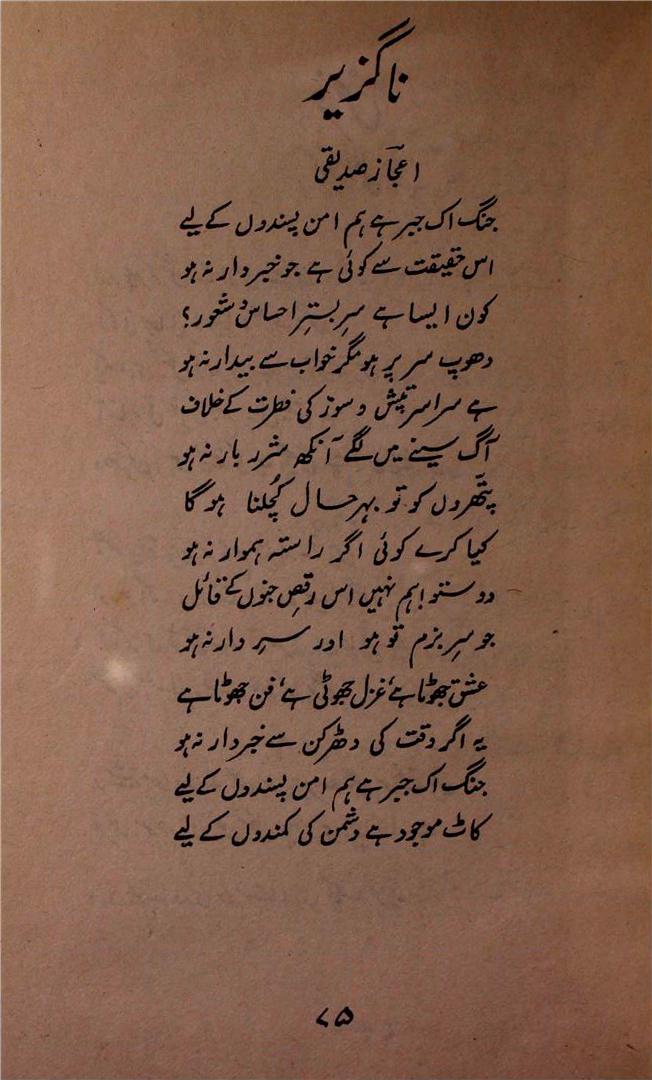 ناگزیر
اعجاز صدیقی
جنگ اک جبر ہے ہم امن پسندوں کے لیے
اس حقیقت سے کوئی ہے جو خبردار نہ ہو
کون ایسا ہے سرِ بسترِ احساس و شعور؟
دھوپ سر پر ہو مگر خواب سے بیدار نہ ہو
ہے سراسر تپش و سوز کی فطرت کے خلاف
آگ سینے میں لگے آنکھ شرر بار نہ ہو
پتّھروں کو تو بہرحال کُچلنا ہو گا
کیا کرے کوئی اگر راستہ ہموار نہ ہو
دوستو! ہم نہیں اس رقصِ جنوں کے قائل
جو سرِ بزم تو ہو اور سرِ دار نہ ہو
عشق جھوٹا ہے، غزل جھوٹی ہے، فن جھوٹا ہے
یہ اگر وقت کی دھڑکن سے خبردار نہ ہو
جنگ اک جبر ہے ہم امن پسندوں کے لیے
کاٹ موجود ہے دشمن کی کمندوں کے لیے
۷۵